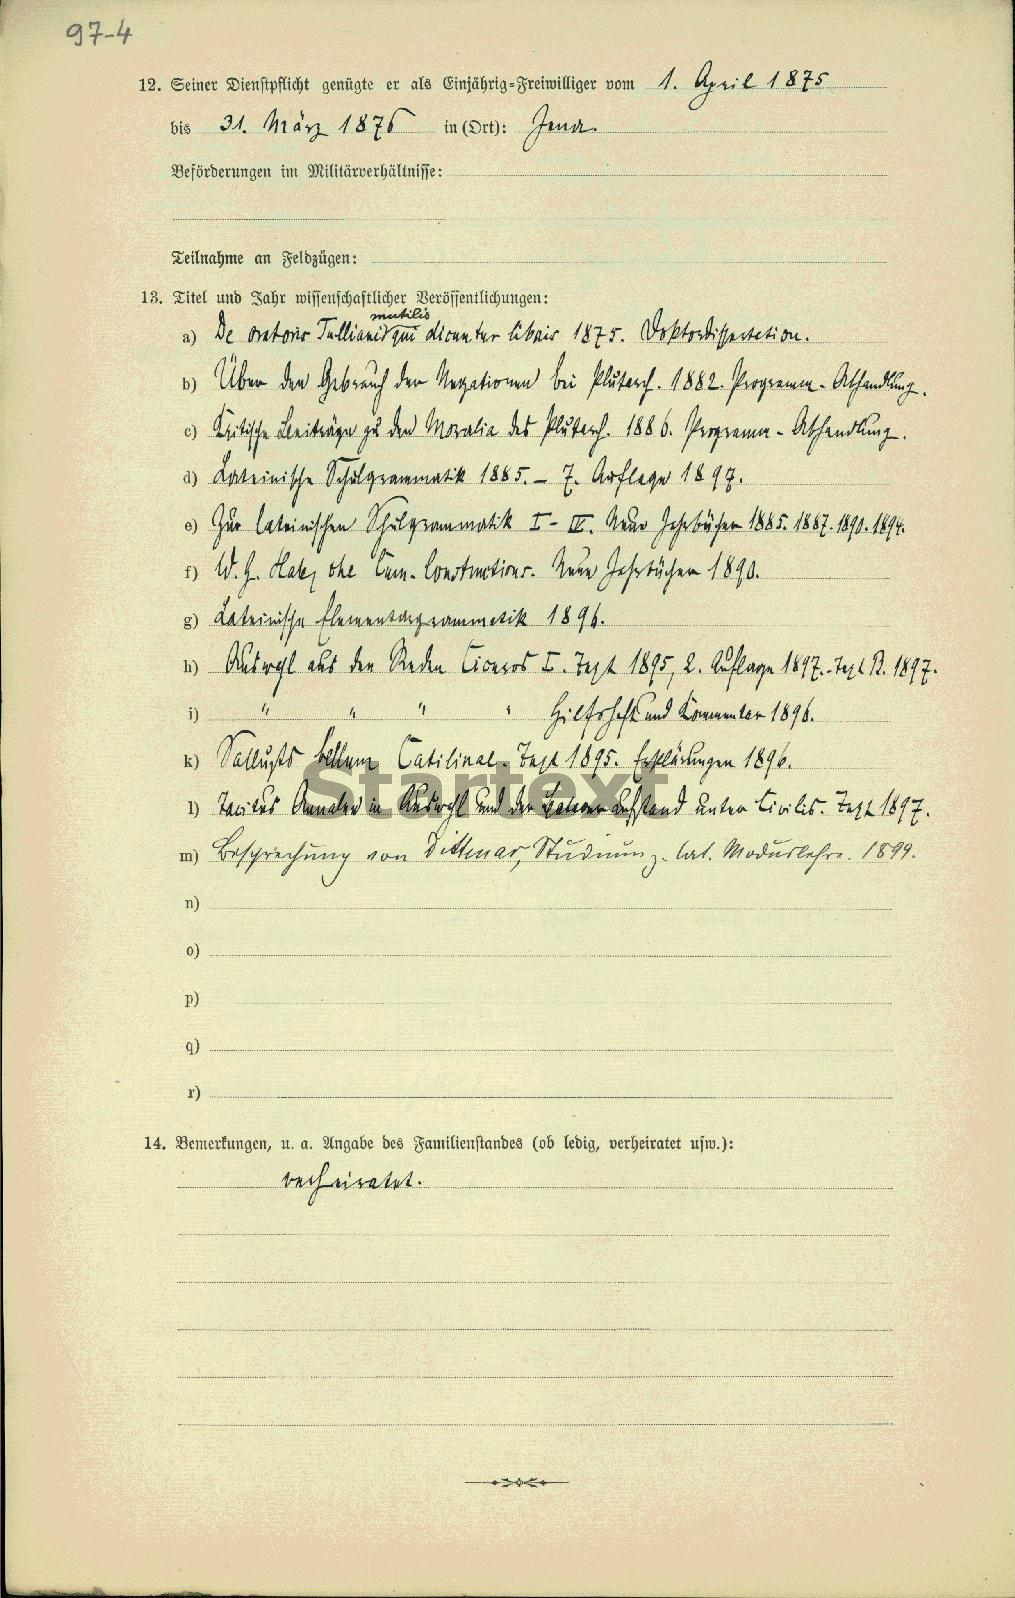 97-4
12. Seiner Dienstpflicht genügte er als Einjährig-Freiwilliger vom 1. April 1875
bis 31. März 1876 in (Ort): Jena.
Beförderungen im Militärverhältnisse:
Teilnahme an Feldzügen:
13. Titel und Jahr wissenschaftlicher Veröffentlichungen:
mutilis
a) De oratoris Tullianis qui dicuntur libris 1875. Doktordissertation.
b) Über den Gebrauch der Negationen bei Plutarch. 1882. Programm-Abhandlung.
c) Kritische Beiträge zu den Moralia des Plutarch. 1886. Programm-Abhandlung.
d) Lateinische Schulgrammatik 1885. – 7. Auflage 1897.
e) Zur lateinischen Schulgrammatik I–IV. Neue Jahrbücher 1885. 1887. 1890. 1894.
f) W. G. Hale, the Cum-Constructions. Neue Jahrbücher 1890.
g) Lateinische Elementargrammatik 1896.
h) Auswahl aus den Reden Ciceros I. Text 1895, 2. Auflage 1897. Text B. 1897.
i) " " " " Hilfsheft und Kommentar 1896.
k) Sallusts bellum Catilinae. Text 1895. Erklärungen 1896.
l) Tacitus Annalen in Auswahl und der Bataveraufstand unter Civilis. Text 1897.
m) Besprechung von Dittmar, Studium z. lat. Moduslehre. 1899.
n)
o)
p)
q)
r)
14. Bemerkungen, u. a. Angabe des Familienstandes (ob ledig, verheiratet usw.):
verheiratet.
Startext